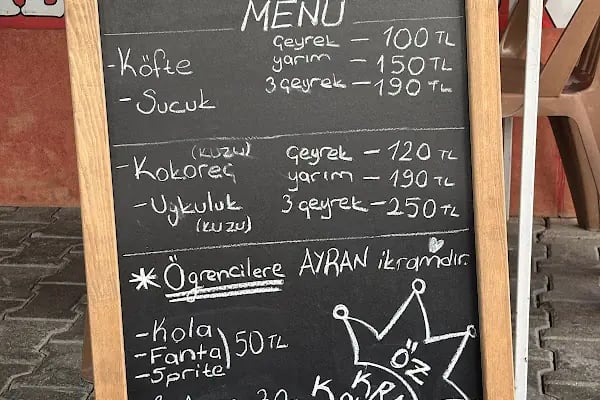 MENÜ
-Köfte
-Sucuk
çeyrek - 100 TL
yarım - 150 TL
3 çeyrek - 190 TL
-Kokoreç (kuzu)
-Uykuluk (kuzu)
çeyrek - 120 TL
yarım - 190 TL
3 çeyrek - 250 TL
* Öğrencilere AYRAN ikramdır.
-Kola
-Fanta
-Sprite
50 TL
ÖZ
KRAL